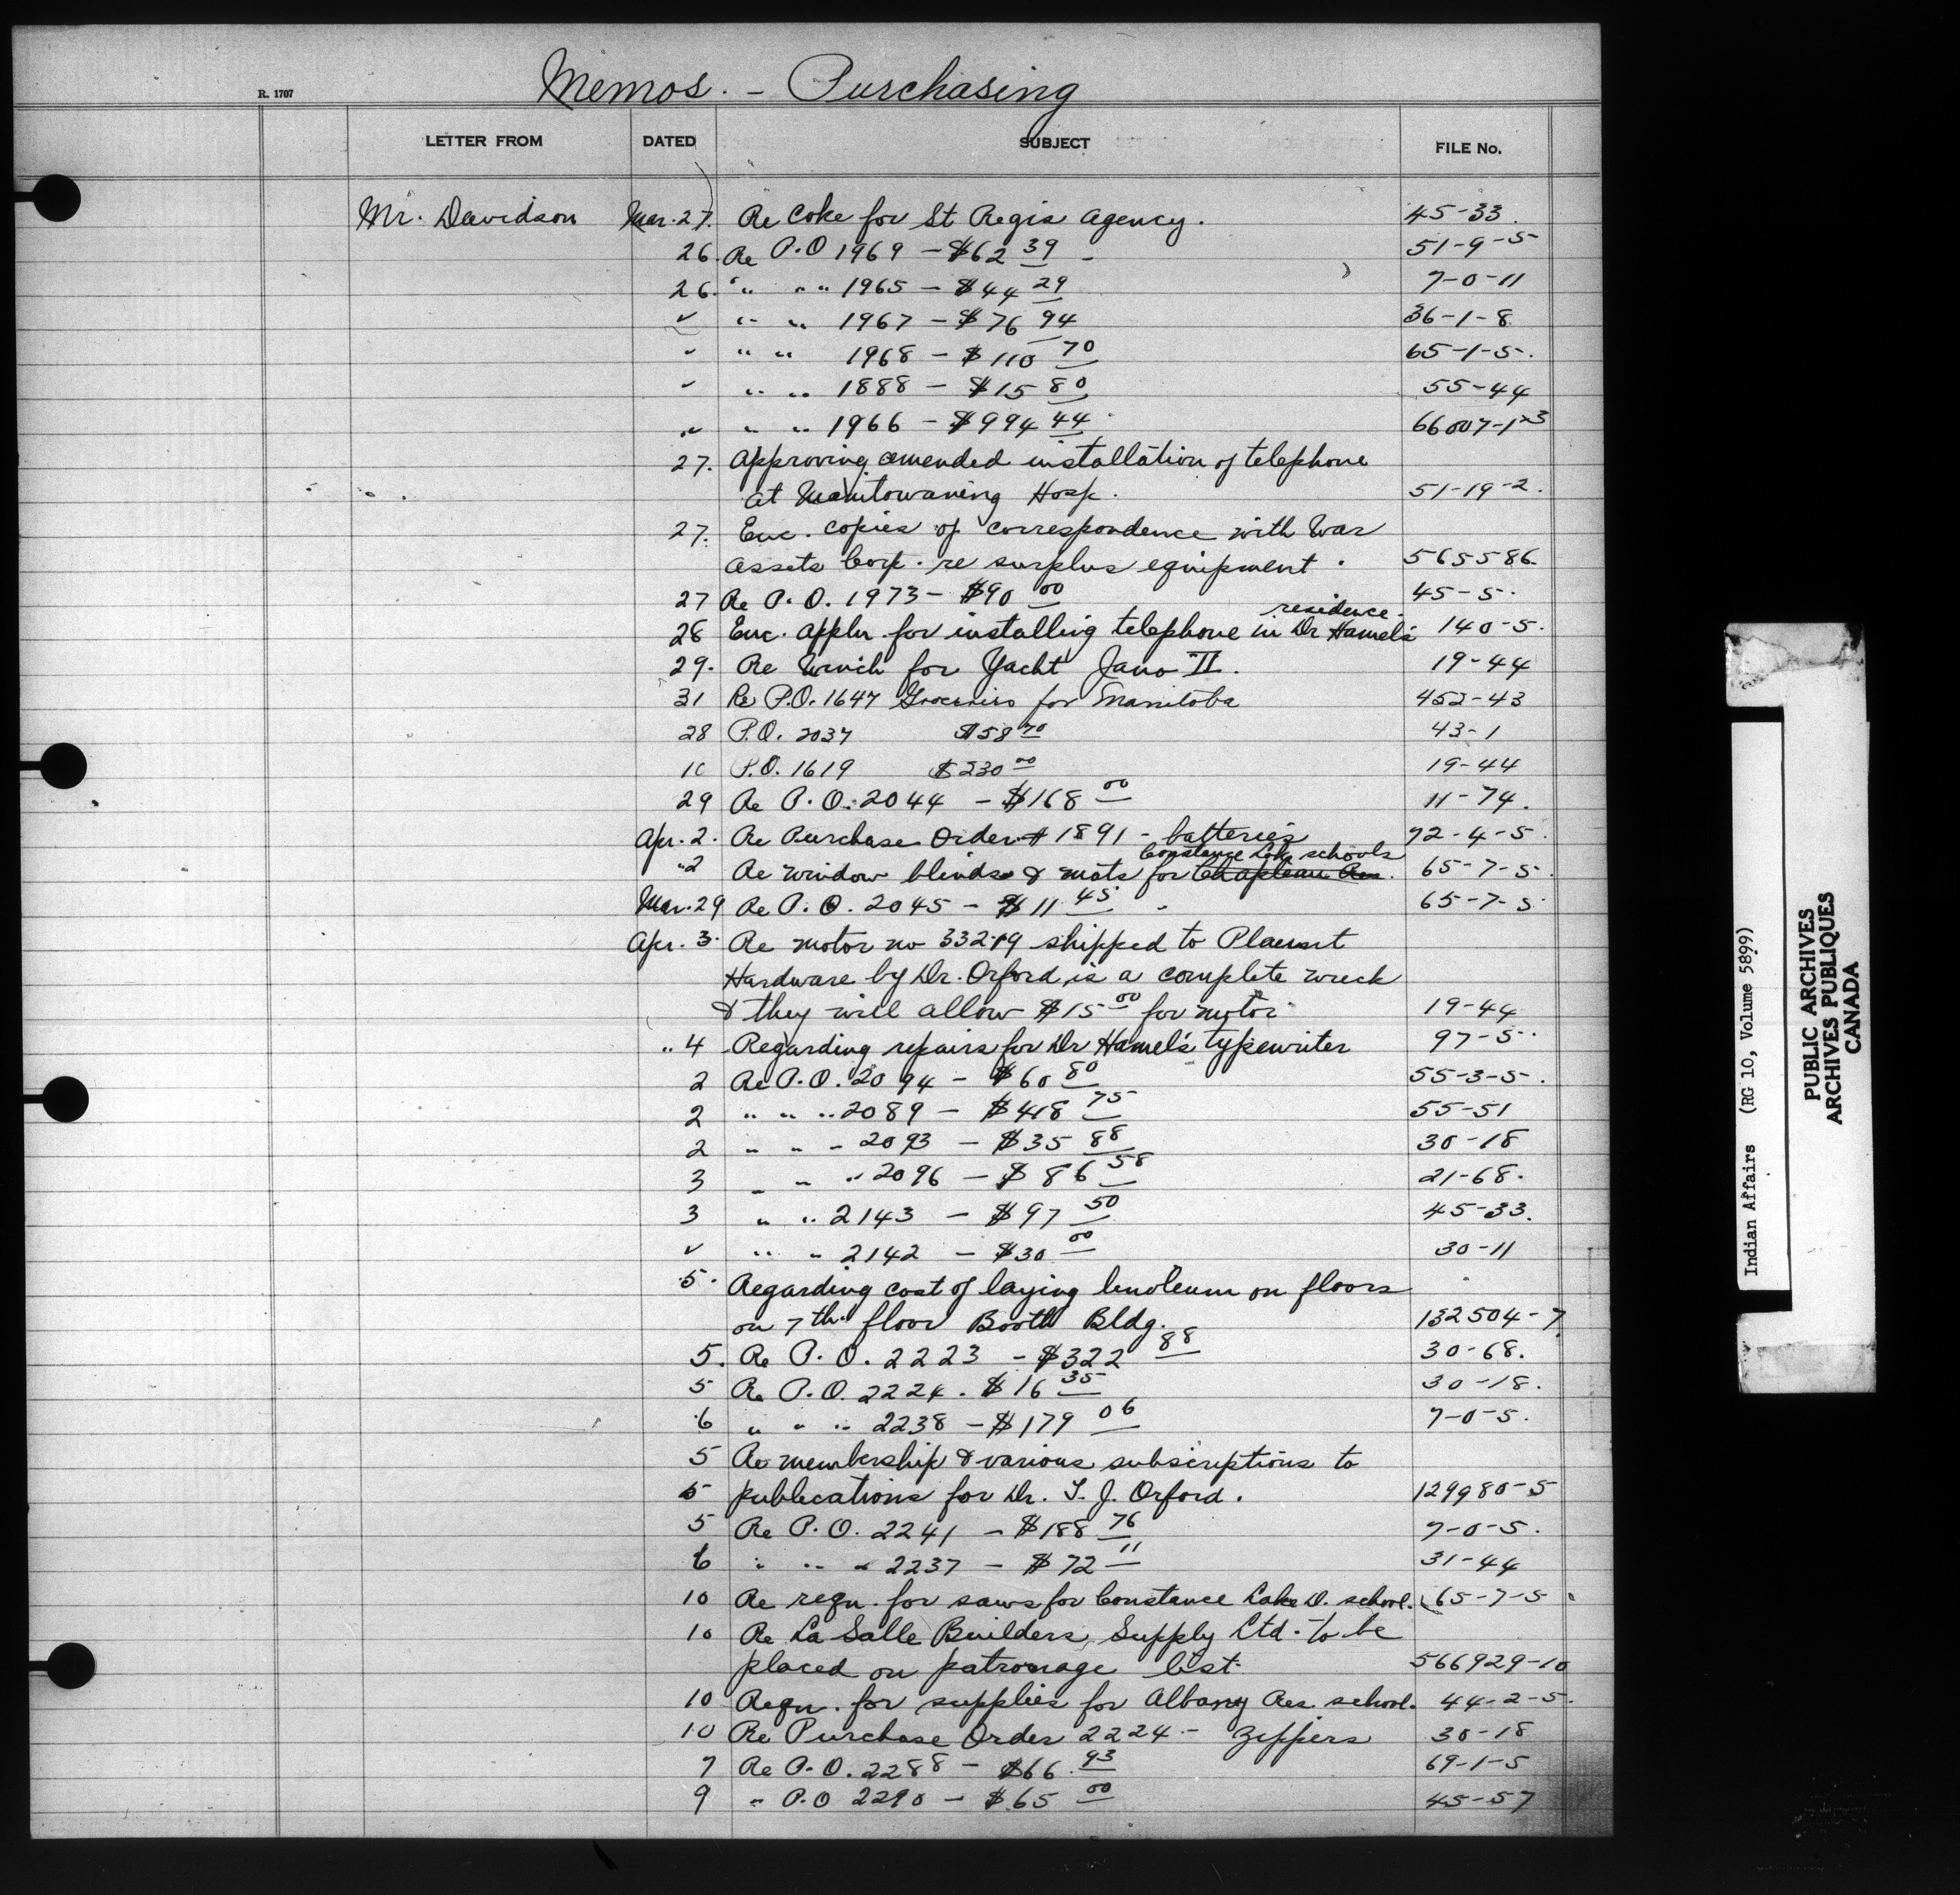 Memos. - Purchasing
R. 1707
LETTER FROM DATED SUBJECT FILE No.
Mr. Davidson Mar. 27. Re Coke for St Regis Agency. 45-33.
26. Re P.O 1969 - $62 39 - 51-9-5
26. " " " 1965 - $44 29 7-0-11
" " " 1967 - $76 94 36-1-8
" " " 1968 - $110 70 65-1-5.
" " " 1888 - $15 80 55-44
" " " 1966 - $994 44 66007-1-3
27. Approving amended installation of telephone
at Manitowaning Hosp. 51-19-2.
27. Enc. copies of correspondence with War
Assets Corp. re surplus equipment. 565586.
27 Re P.O. 1973 - $90 00 45-5.
residence.
28 Enc. appln. for installing telephone in Dr Hamel's 140-5.
29. Re Winch for Yacht Jano II. 19-44
31 Re P.O. 1647 Groceries for Manitoba 452-43
28 P.O. 2037 $58 70 43-1
10 P.O. 1619 $230 00 19-44
29 Re P.O. 2044 - $168 00 11-74.
Apr. 2. Re Purchase Order # 1891 - batteries 72-4-5.
Constance Lake schools
"2 Re window blinds & mats for Chapleau Res. 65-7-5.
Mar. 29 Re P.O. 2045 - $11 45 - 65-7-5.
Apr. 3. Re motor no 33219 shipped to Plaunt
Hardware by Dr. Orford, is a complete wreck
& they will allow $15 00 for motor 19-44
" 4 Regarding repairs for Dr Hamel's typewriter 97-5.
2 Re P.O. 2094 - $60 80 55-3-5.
2 " " " 2089 - $418 75 55-51
2 " " " 2093 - $35 88 30-18
3 " " " 2096 - $86 58 21-68.
3 " " 2143 - $97 50 45-33.
" " " 2142 - $30 00 30-11
5. Regarding cost of laying linoleum on floors
on 7th floor Booth Bldg. 132504-7
5. Re P.O. 2223 - $322 88 30-68.
5 Re P.O. 2224. $16 35 30-18.
6 " " " 2238 - $179 06 7-0-5.
5 Re membership & various subscriptions to
5 publications for Dr. T. J. Orford. 129980-5
5 Re P.O. 2241 - $188 76 7-0-5.
6 " " " 2237 - $72 11 31-44
10 Re reqn. for saws for Constance Lake D. school. 65-7-5
10 Re La Salle Builders, Supply Ltd. to be
placed on patronage list. 566929-10
10 Reqn. for supplies for Albany Res. school. 44-2-5.
10 Re Purchase Order 2224 - Zippers 30-18
7 Re P.O. 2288 - $66 93 69-1-5
9 " P.O 2290 - $65 00 45-57
Indian Affairs (RG 10, Volume 5899)
PUBLIC ARCHIVES
ARCHIVES PUBLIQUES
CANADA